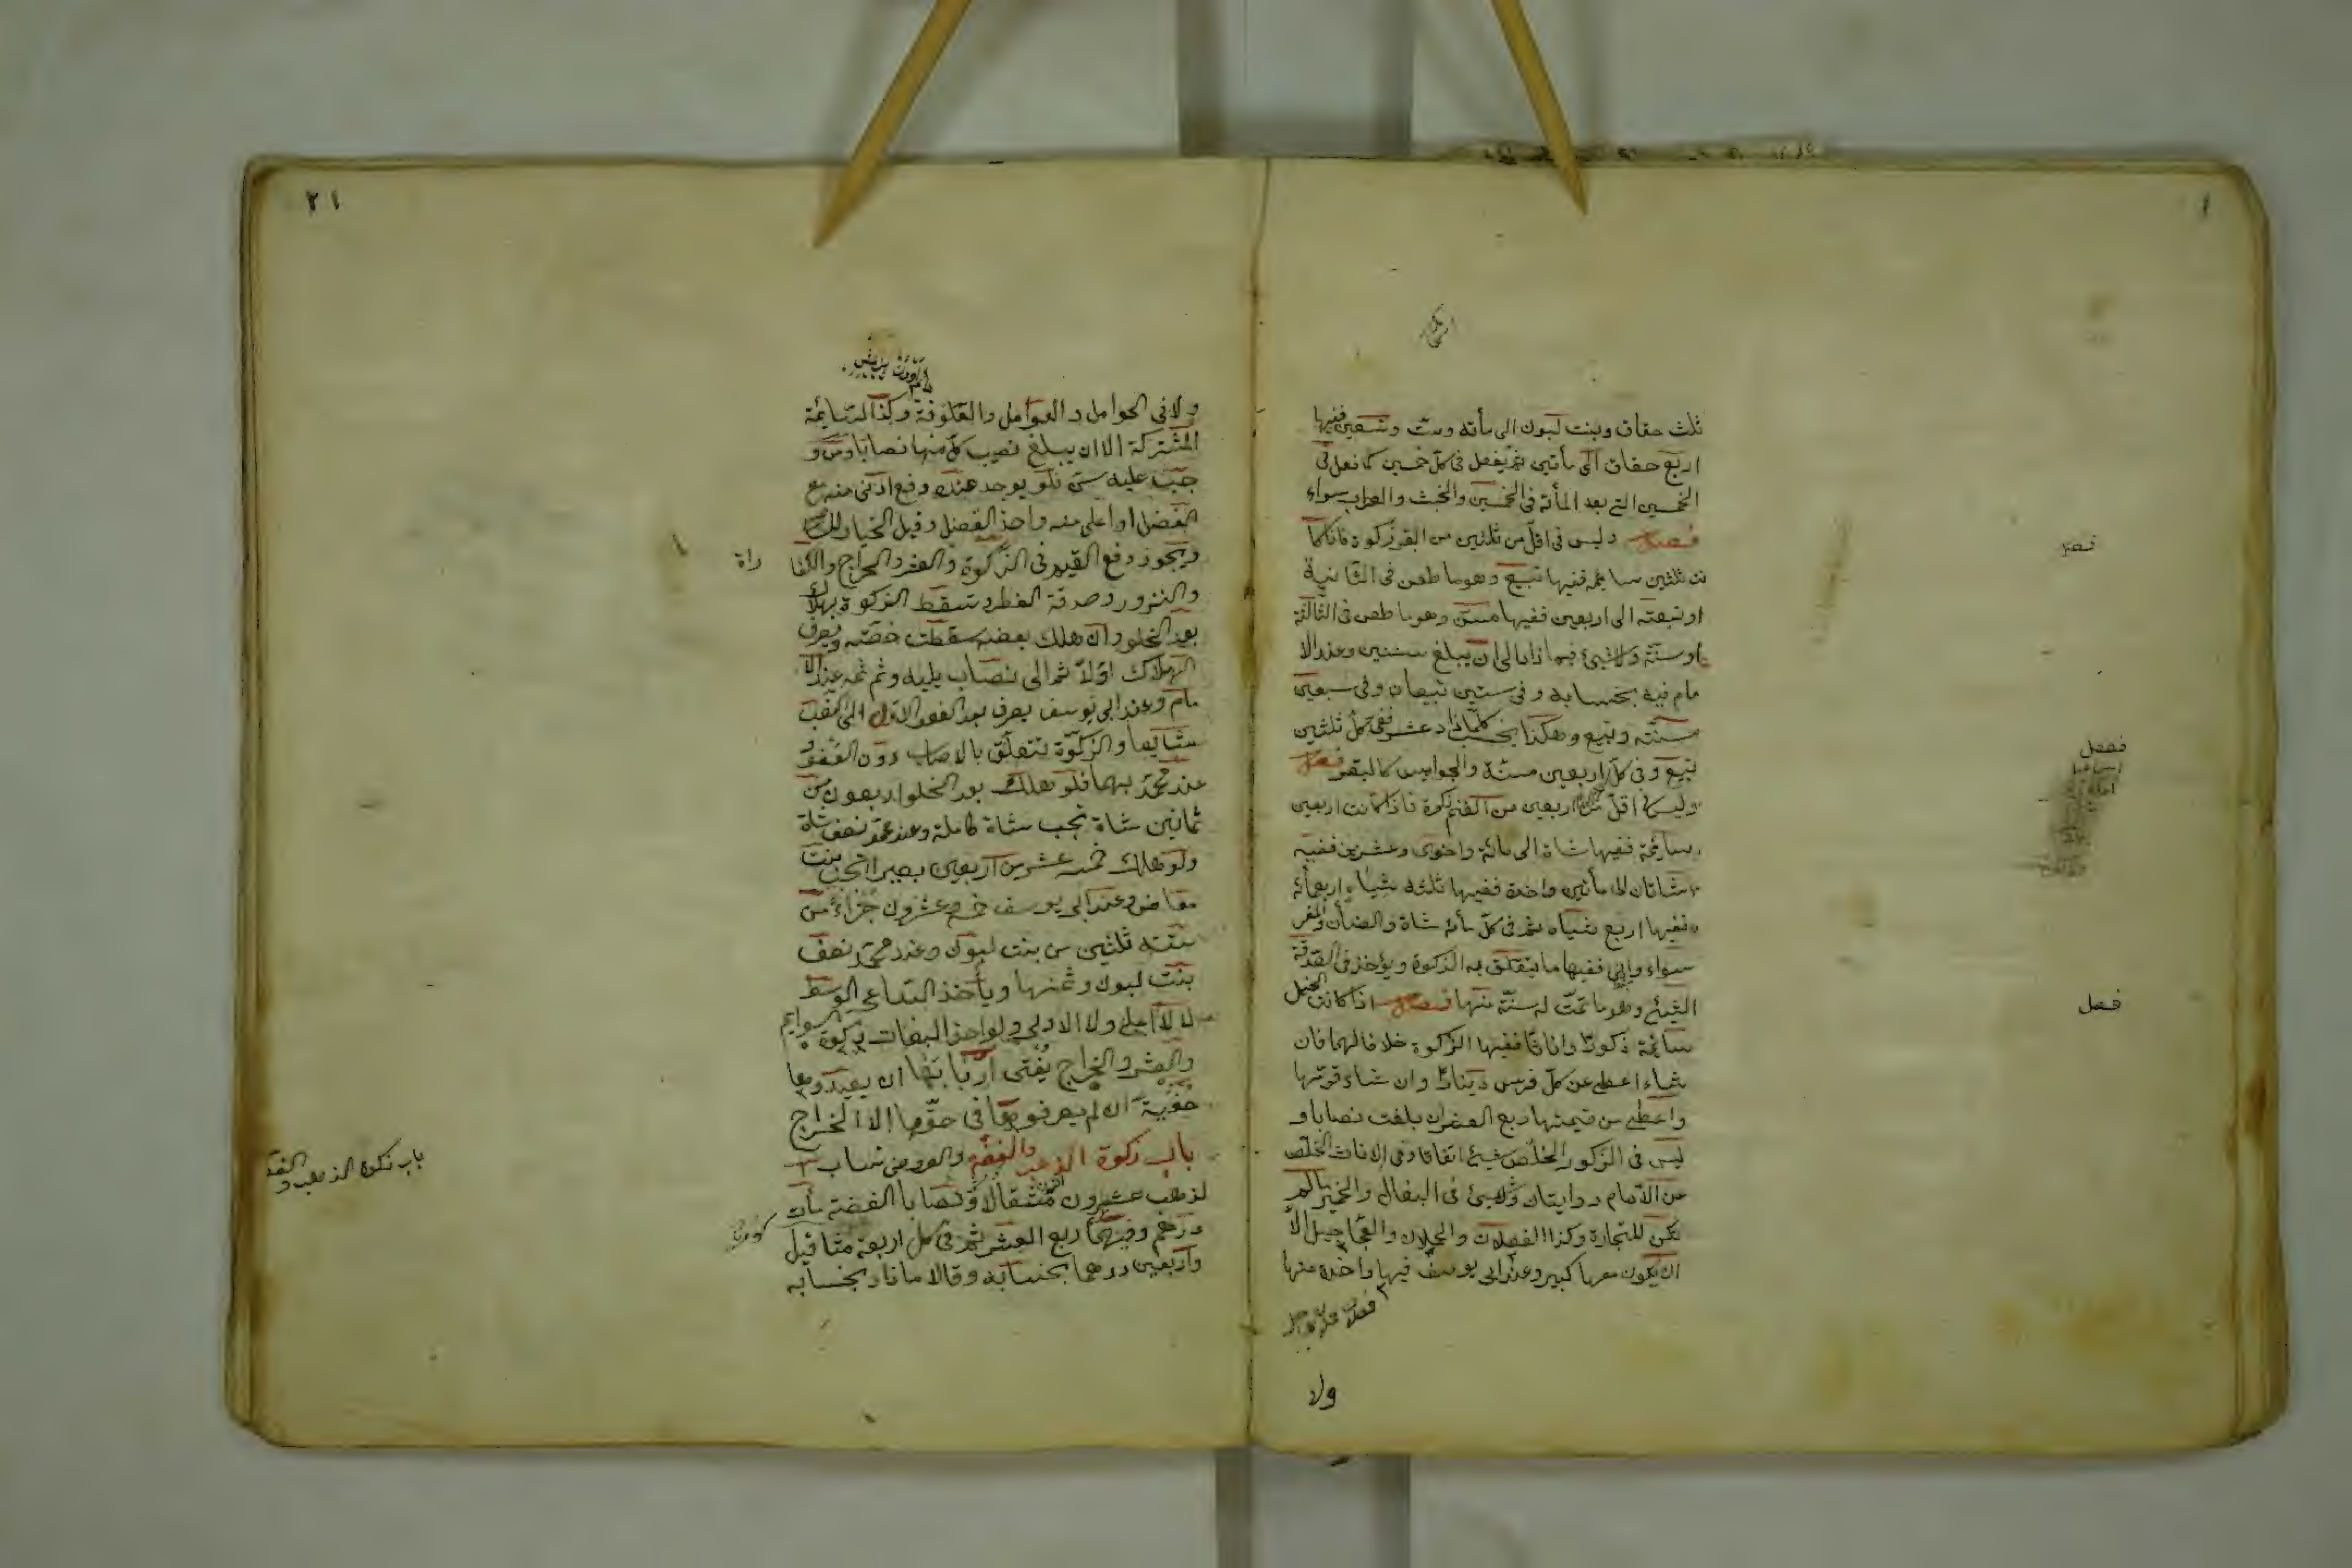 ثلث حقاق وبنت لبون الى مأتة وست وتسعين ففيها
اربع حقاق الى مأتين ثم يفعل فى كل خمسين كما فعل فى
الخمسين التى بعد المأتة فى الخمسين والبخت والعراب سواء
فصل وليس فى اقل من ثلثين من البقر زكوة فاذا كا
نت ثلثين سايمه ففيها تبيع وهو ما طعن فى الثانية
او تبيعته الى اربعين ففيها مسن وهو ما طعن فى الثالثة
او مسنة ولا شيئ فيما زاد الى ان يبلغ ستين وعند الا
مام فيه بحسابه وفى ستين تبيعان وفى سبعين
مسنة وتبيع وهكذا يحسب كلما زاد عشر ففى كل ثلثين
تبيع وفى كل اربعين مسنة والجواميس كالبقر فصل
وليس فى اقل من اربعين من الغنم زكوة فاذا كانت اربعين
سايمة ففيها شاة الى مائة واحدى وعشرين ففيه
شاتان الى مأتين واحدة ففيها ثلثه شياه اربعمأئة
ففيها اربع شياه ثم فى كل مأئة شاة والضأن والمعز
سواء وادنى ففيها ما يتعلق به الزكوة ويؤخذ فى الصدقة
الثنئ وهو ما تمت له سنة منها فصل اذا كانت الخيل
سائمة ذكورا واناثا ففيها الزكوة خلافا لهما فان
شاء اعطى عن كل فرس دينارا وان شاء قومها
واعطى من قيمتها ربع العشر ان بلغت نصابا و
ليس فى الذكور الخلص شيئ اتفاقا وفى الاناث الخلص
عن الامام روايتان ولا شيئ فى البغال والحمير مالم
تكن للتجارة وكذا الفصلان والحملان والعجاجيل الا
ان يكون معها كبير وعند ابى يوسف فيها واحدة منها
ولا
فصل
فصل
فصل
٢١
ولا فى الحوامل والعوامل والعلوفة وكذا السايمة
المشتركة الا ان يبلغ نصيب كل منها نصابا ومن و
جب عليه سن فلم يوجد عنده دفع ادنى منه مع
الفضل او اعلى منه واخذ الفضل وقيل الخيار للساعى
ويجوز دفع القيم فى الزكوة والعشر والخراج والكفا
راة
والنذور وصدقة الفطر وتسقط الزكوة بهلاك
بعد الحلول وان هلك بعضه سقطت حصته ويصرف
الهلاك اولا ثم الى نصاب يليه وثم ثمه عند الا
مام وعند ابى يوسف يصرف بعد العفو الاول الى النصب
شايعا والزكوة تتعلق بالنصاب دون العفو
عند محمد بهما فلو هلك بعد الحلول اربعون من
ثمانين شاة تجب شاة كاملة وعند محمد نصف شاة
ولو هلك خمسه عشر من اربعين بعيرا تجب بنت
مخاض وعند ابى يوسف خمسه وعشرون جزاء من
ستته ثلثين من بنت لبون وعند محمد نصف
بنت لبون وثمنها ويأخذ الساعى الوسط
لا الاعلى ولا الادنى ولو اخذ البغات زكوة السوايم
والعشر والخراج يفتى اربابها ان يعيدوها
خفية ان لم يصرفوها فى حقها الا الخراج
باب زكوة الذهب والفضة والعروض نصاب
لذهب عشرون مثقالا ونصابا الفضة مأتا
درهم وفيهما ربع العشر ثم فى كل اربعة مثاقيل
واربعين درهما بحسابه وقالا ما زاد بحسابه
باب زكوة الذهب والفضة